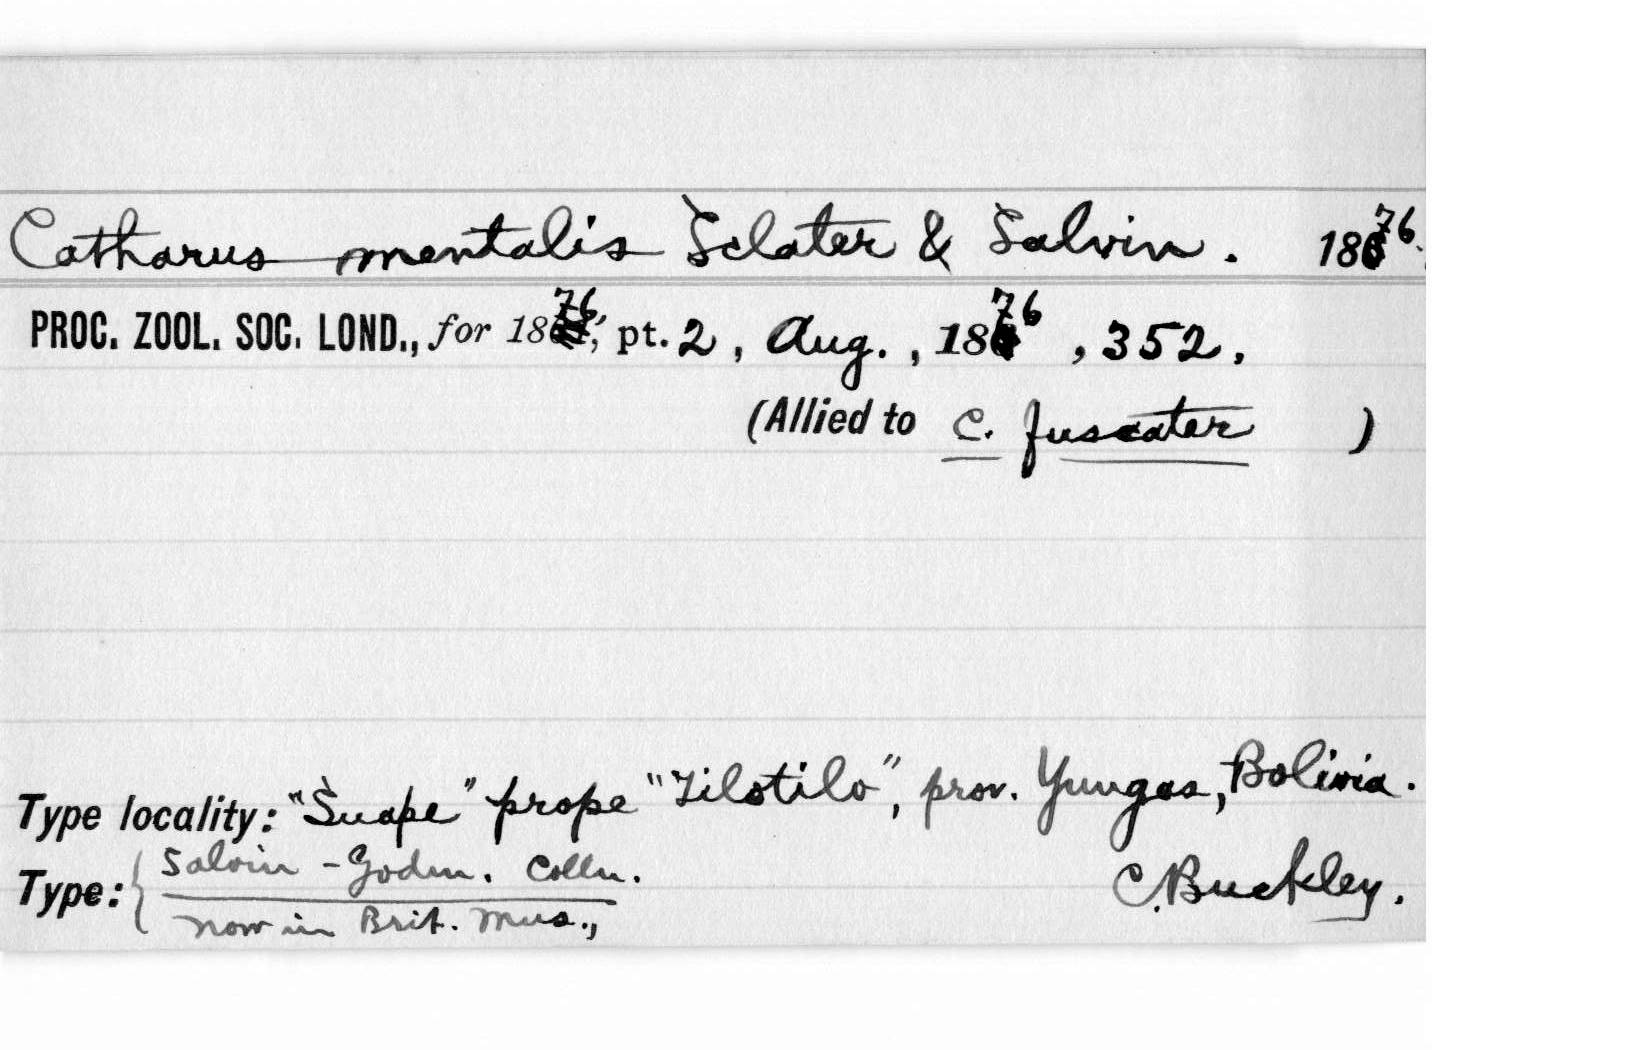 Catharus mentalis Sclater & Salvin. 1876.
PROC. ZOOL. SOC. LOND., for 1876, pt. 2, Aug., 1876, 352.
(Allied to C. fuscater )
Type locality: "Suape" prope "Tilotilo", prov. Yungas, Bolivia.
Type: { Salvin - Godm. Colln. C. Buckley.
now in Brit. Mus.,